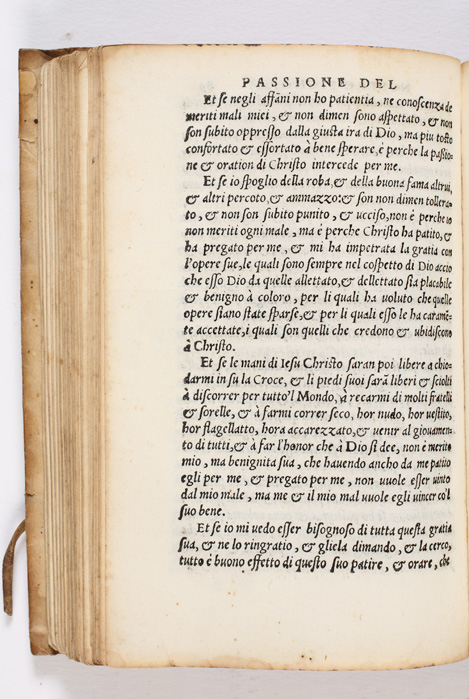 PASSIONE DEL
Et ſe negli affāni non ho patientia, ne conoſcenza de
meriti mali miei, & non dimen ſono aſpettato, & non
ſon ſubito oppreſſo dalla giuſta ira di Dio, ma piu toſto
confortato & eſſortato à bene ſperare, è perche la paſſio-
ne & oration di Chriſto intercede per me.
Et ſe io ſpoglio della roba, & della buona fama altrui,
& altri percoto, & ammazzo: & ſon non dimen tollera-
to, & non ſon ſubito punito, & ucciſo, non è perche io
non meriti ogni male, ma è perche Chriſto ha patito, &
ha pregato per me, & mi ha impetrata la gratia con
l'opere ſue, le quali ſono ſempre nel coſpetto di Dio accio
che eſſo Dio da quelle allettato, & dellettato ſia placabile
& benigno à coloro, per li quali ha uoluto che quelle
opere ſiano ſtate ſparſe, & per li quali eſſo le ha caramē-
te accettate, i quali ſon quelli che credono & ubidiſcono
à Chriſto.
Et ſe le mani di Ieſu Chriſto ſaran poi libere a chio-
darmi in ſu la Croce, & li piedi ſuoi ſarā liberi & ſciolti
à diſcorrer per tutto'l Mondo, à recarmi di molti fratelli
& ſorelle, & à farmi correr ſeco, hor nudo, hor ueſtito,
hor flagellatto, hora accarezzato, & uenir al giouamen-
to di tutti, & à far l'honor che à Dio ſi dee, non è merito
mio, ma benignita ſua, che hauendo ancho da me patito
egli per me, & pregato per me, non uuole eſſer uinto
dal mio male, ma me & il mio mal uuole egli uincer co'l
ſuo bene.
Et ſe io mi uedo eſſer biſognoſo di tutta queſta gratia
ſua, & ne lo ringratio, & gliela dimando, & la cerco,
tutto è buono effetto di queſto ſuo patire, & orare, che